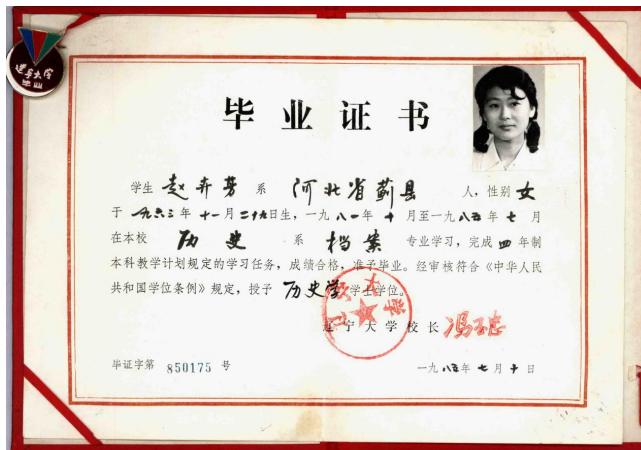 辽宁大学
毕业
毕业证书
学生 赵卉芳 系 河北省蓟县 人，性别 女
于 一九六三 年 十一 月 二十九 日生，一九八一年 十 月至一九八五年 七 月
在本校 历史 系 档案 专业学习，完成 四 年制
本科教学计划规定的学习任务，成绩合格，准予毕业。经审核符合《中华人民
共和国学位条例》规定，授予 历史学 学士学位。
辽宁大学校长
毕证字第 850175 号
一九八五年 七 月 十 日